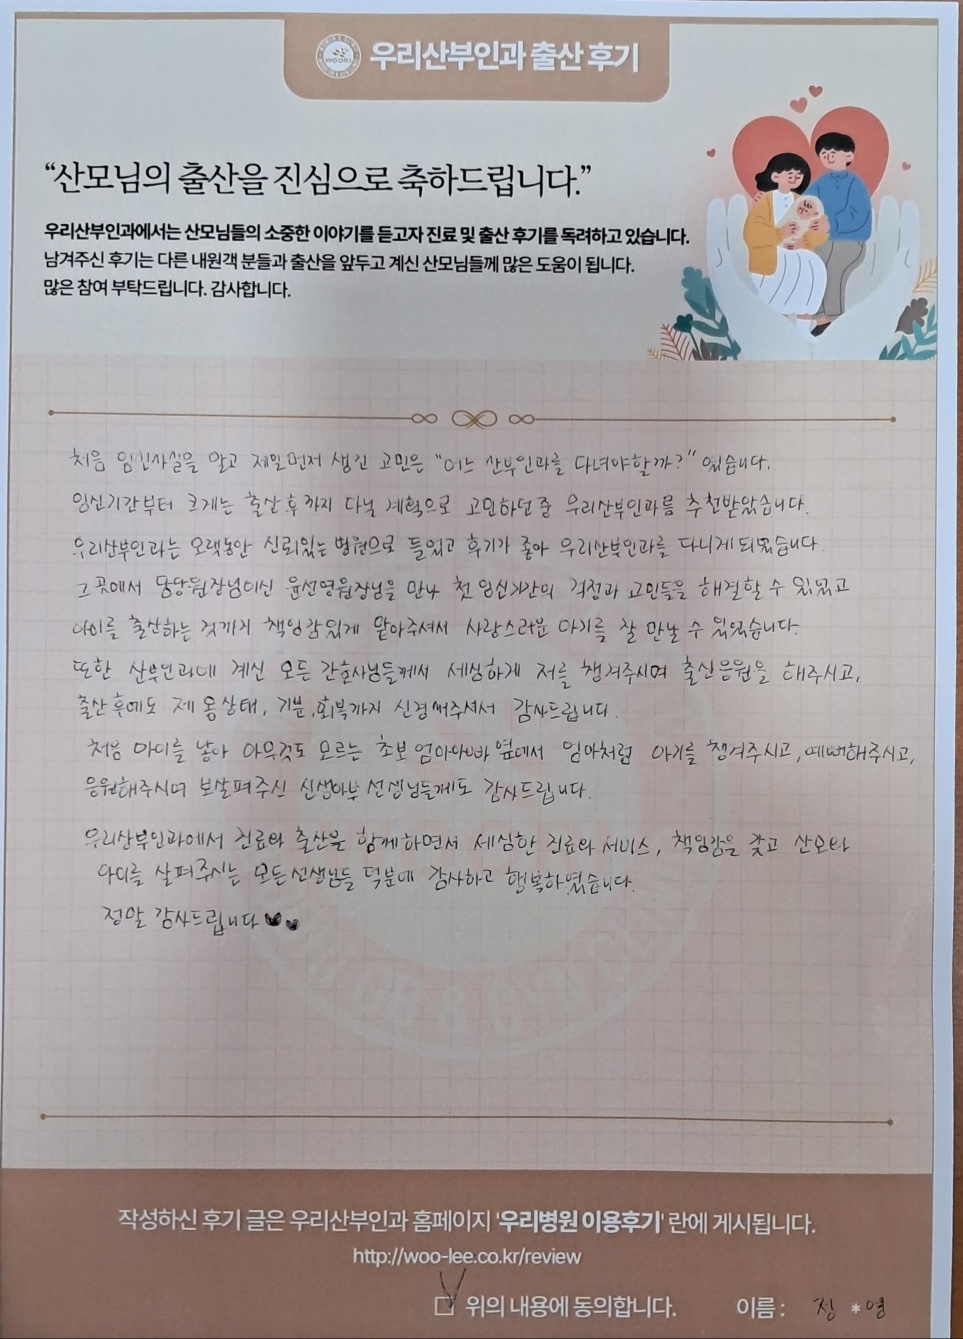 WOORI
우리산부인과 출산 후기
“산모님의 출산을 진심으로 축하드립니다.”
우리산부인과에서는 산모님들의 소중한 이야기를 듣고자 진료 및 출산 후기를 독려하고 있습니다.
남겨주신 후기는 다른 내원객 분들과 출산을 앞두고 계신 산모님들께 많은 도움이 됩니다.
많은 참여 부탁드립니다. 감사합니다.
처음 임신사실을 알고 제일먼저 생긴 고민은 "어느 산부인과를 다녀야할까?" 였습니다.
임신기간부터 크게는 출산후까지 다닐 계획으로 고민하던 중 우리산부인과를 추천받았습니다.
우리산부인과는 오랫동안 신뢰있는 병원으로 들었고 후기가 좋아 우리산부인과를 다니게되었습니다.
그곳에서 담당원장님이신 윤선영원장님을 만나 첫 임신기간의 걱정과 고민들을 해결할 수 있었고
아이를 출산하는 것까지 책임감있게 맡아주셔서 사랑스러운 아기를 잘 만날 수 있었습니다.
또한 산부인과에 계신 모든 간호사님들께서 세심하게 저를 챙겨주시며 출산응원을 해주시고,
출산후에도 제 몸상태, 기분, 회복까지 신경써주셔서 감사드립니다.
처음 아이를 낳아 아무것도 모르는 초보 엄마아빠 옆에서 엄마처럼 아기를 챙겨주시고, 예뻐해주시고,
응원해주시며 보살펴주신 신생아부 선생님들께도 감사드립니다.
우리산부인과에서 진료와 출산을 함께하면서 세심한 진료와 서비스, 책임감을 갖고 산모와
아이를 살펴주시는 모든선생님들 덕분에 감사하고 행복하였습니다.
정말 감사드립니다 ♥♥
작성하신 후기 글은 우리산부인과 홈페이지 '우리병원 이용후기' 란에 게시됩니다.
http://woo-lee.co.kr/review
위의 내용에 동의합니다. 이름 : 정 *영